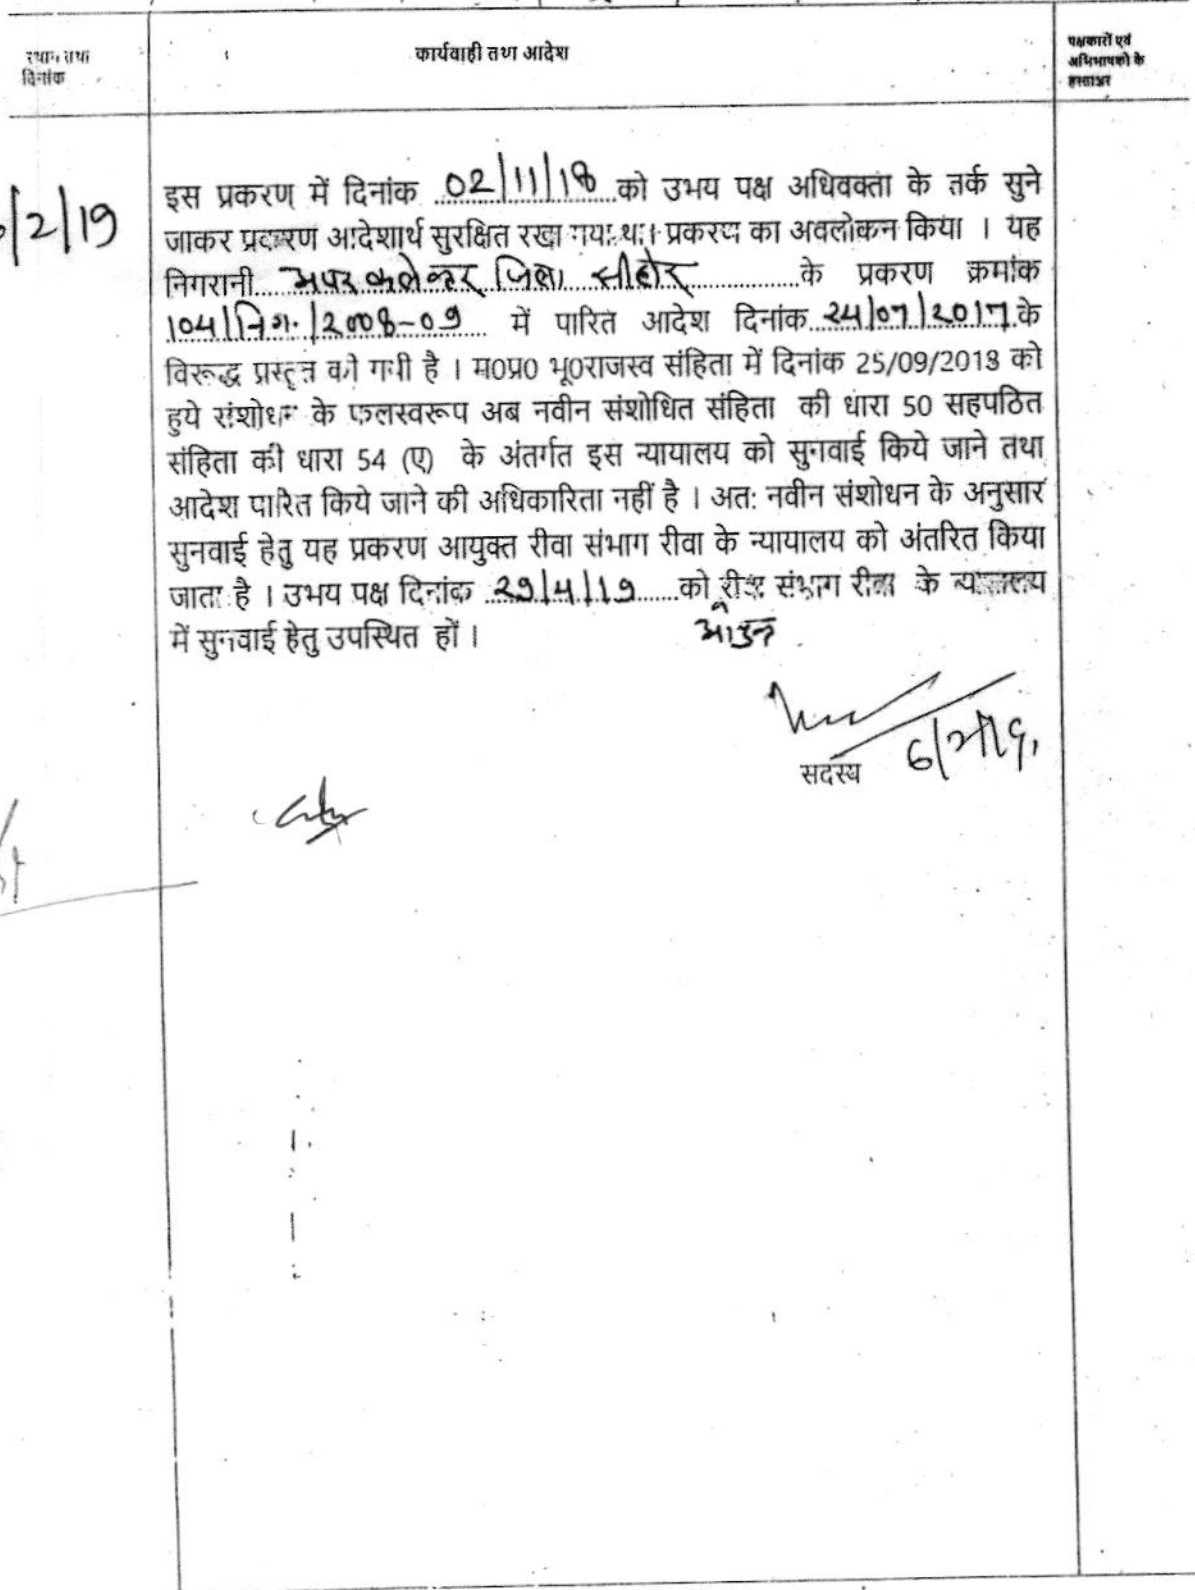 स्थान तथा
दिनांक
कार्यवाही तथा आदेश
पक्षकारों एवं
अभिभाषकों के
हस्ताक्षर
/2/19
इस प्रकरण में दिनांक 02/11/18 को उभय पक्ष अधिवक्ता के तर्क सुने
जाकर प्रकरण आदेशार्थ सुरक्षित रखा गया था। प्रकरण का अवलोकन किया । यह
निगरानी अपर कलेक्टर जिला सीहोर के प्रकरण क्रमांक
104/निग./2008-09 में पारित आदेश दिनांक 24/07/2017 के
विरूद्ध प्रस्तुत की गयी है । म0प्र0 भू0राजस्व संहिता में दिनांक 25/09/2018 को
हुये संशोधन के फलस्वरूप अब नवीन संशोधित संहिता की धारा 50 सहपठित
संहिता की धारा 54 (ए) के अंतर्गत इस न्यायालय को सुनवाई किये जाने तथा
आदेश पारित किये जाने की अधिकारिता नहीं है । अतः नवीन संशोधन के अनुसार
सुनवाई हेतु यह प्रकरण आयुक्त रीवा संभाग रीवा के न्यायालय को अंतरित किया
जाता है । उभय पक्ष दिनांक 29/4/19 को रीवा संभाग रीवा के न्यायालय
में सुनवाई हेतु उपस्थित हों ।
सदस्य